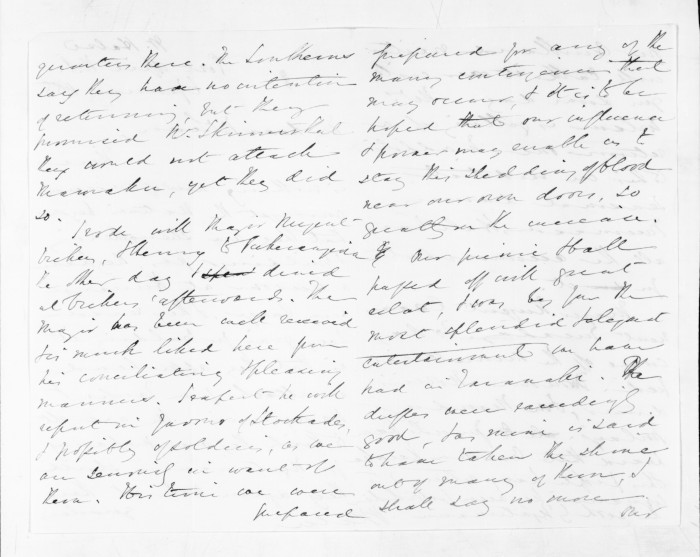 quarters there. The Southerns
say they have no intention
of returning, but they
promised W. Skinner that
they would not attack
yet they did
so.
I rode with Major Nugent
& Henry to
the other day & dined
at afterwards. The
Major has been well received
& is much liked here from
his conciliating & pleasing
manners. I expect he will
report in favour of Stockades,
& possibly of soldiers, as we
are seriously in want of
them. It is time we were
prepared
prepared for any of the
many contingencies that
may occur, & it is to be
hoped that our influence
& power may enable us to
stay this shedding of blood
near our own doors, so
greatly on the increase.
Our picnic & ball
passed off with great
eclat, & was by far the
most splendid & elegant
entertainment we have
had in Taranaki. The
dresses were exceedingly
good, & as mine is said
to have taken the shine
out of many of them, I
shall say no more
our